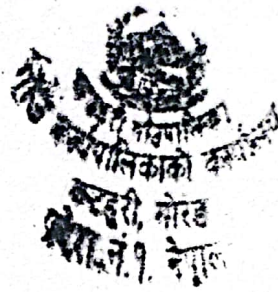 गाउँपालिका
कार्यपालिकाको कार्यालय
कटहरी, मोरङ
प्रदेश नं.१, नेपाल